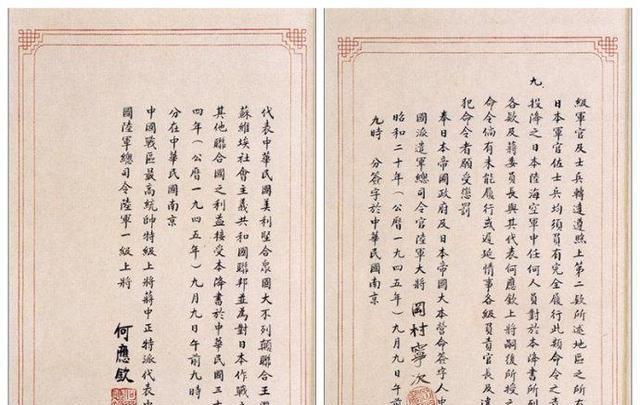 級軍官及士兵轉達遵照上第二款所述地區之所有
日本軍官佐士兵均須負有完全履行此類命令之責
九 投降之日本陸海空軍中任何人員對於本降書所列
各款及蔣委員長與其代表何應欽上將嗣後所授之
命令倘有未能履行或遲延情事各級負責官長及違
犯命令者願受懲罰
奉日本帝國政府及日本帝國大本營命簽字人中
國派遣軍總司令官陸軍大將 岡村寧次
昭和二十年(公曆一九四五年)九月九日午前
九時 分簽字於中華民國南京
代表中華民國美利堅合眾國大不列顛聯合王國
蘇維埃社會主義共和國聯邦並為對日本作戰之
其他聯合國之利益接受本降書於中華民國三十
四年(公曆一九四五年)九月九日午前九時
分在中華民國南京
中國戰區最高統帥特級上將蔣中正特派代表中
國陸軍總司令陸軍一級上將
何應欽